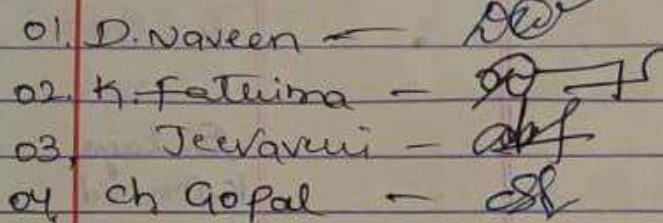 01. D. Naveen -
02. K. Fathima -
03, Jeevaveni -
04, ch Gopal -